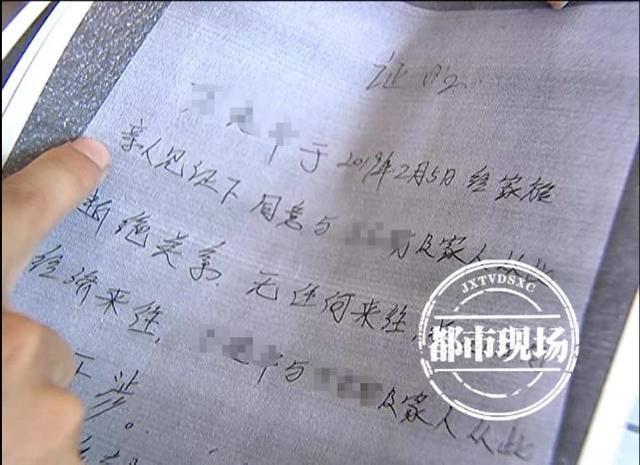 证明
于2019年2月5日经家族
亲人见证下.同意与 及家人从此
断绝关系.无任何来往,
经济来往, 与 及家人从此
不涉。
JXTVDSXC
都市现场